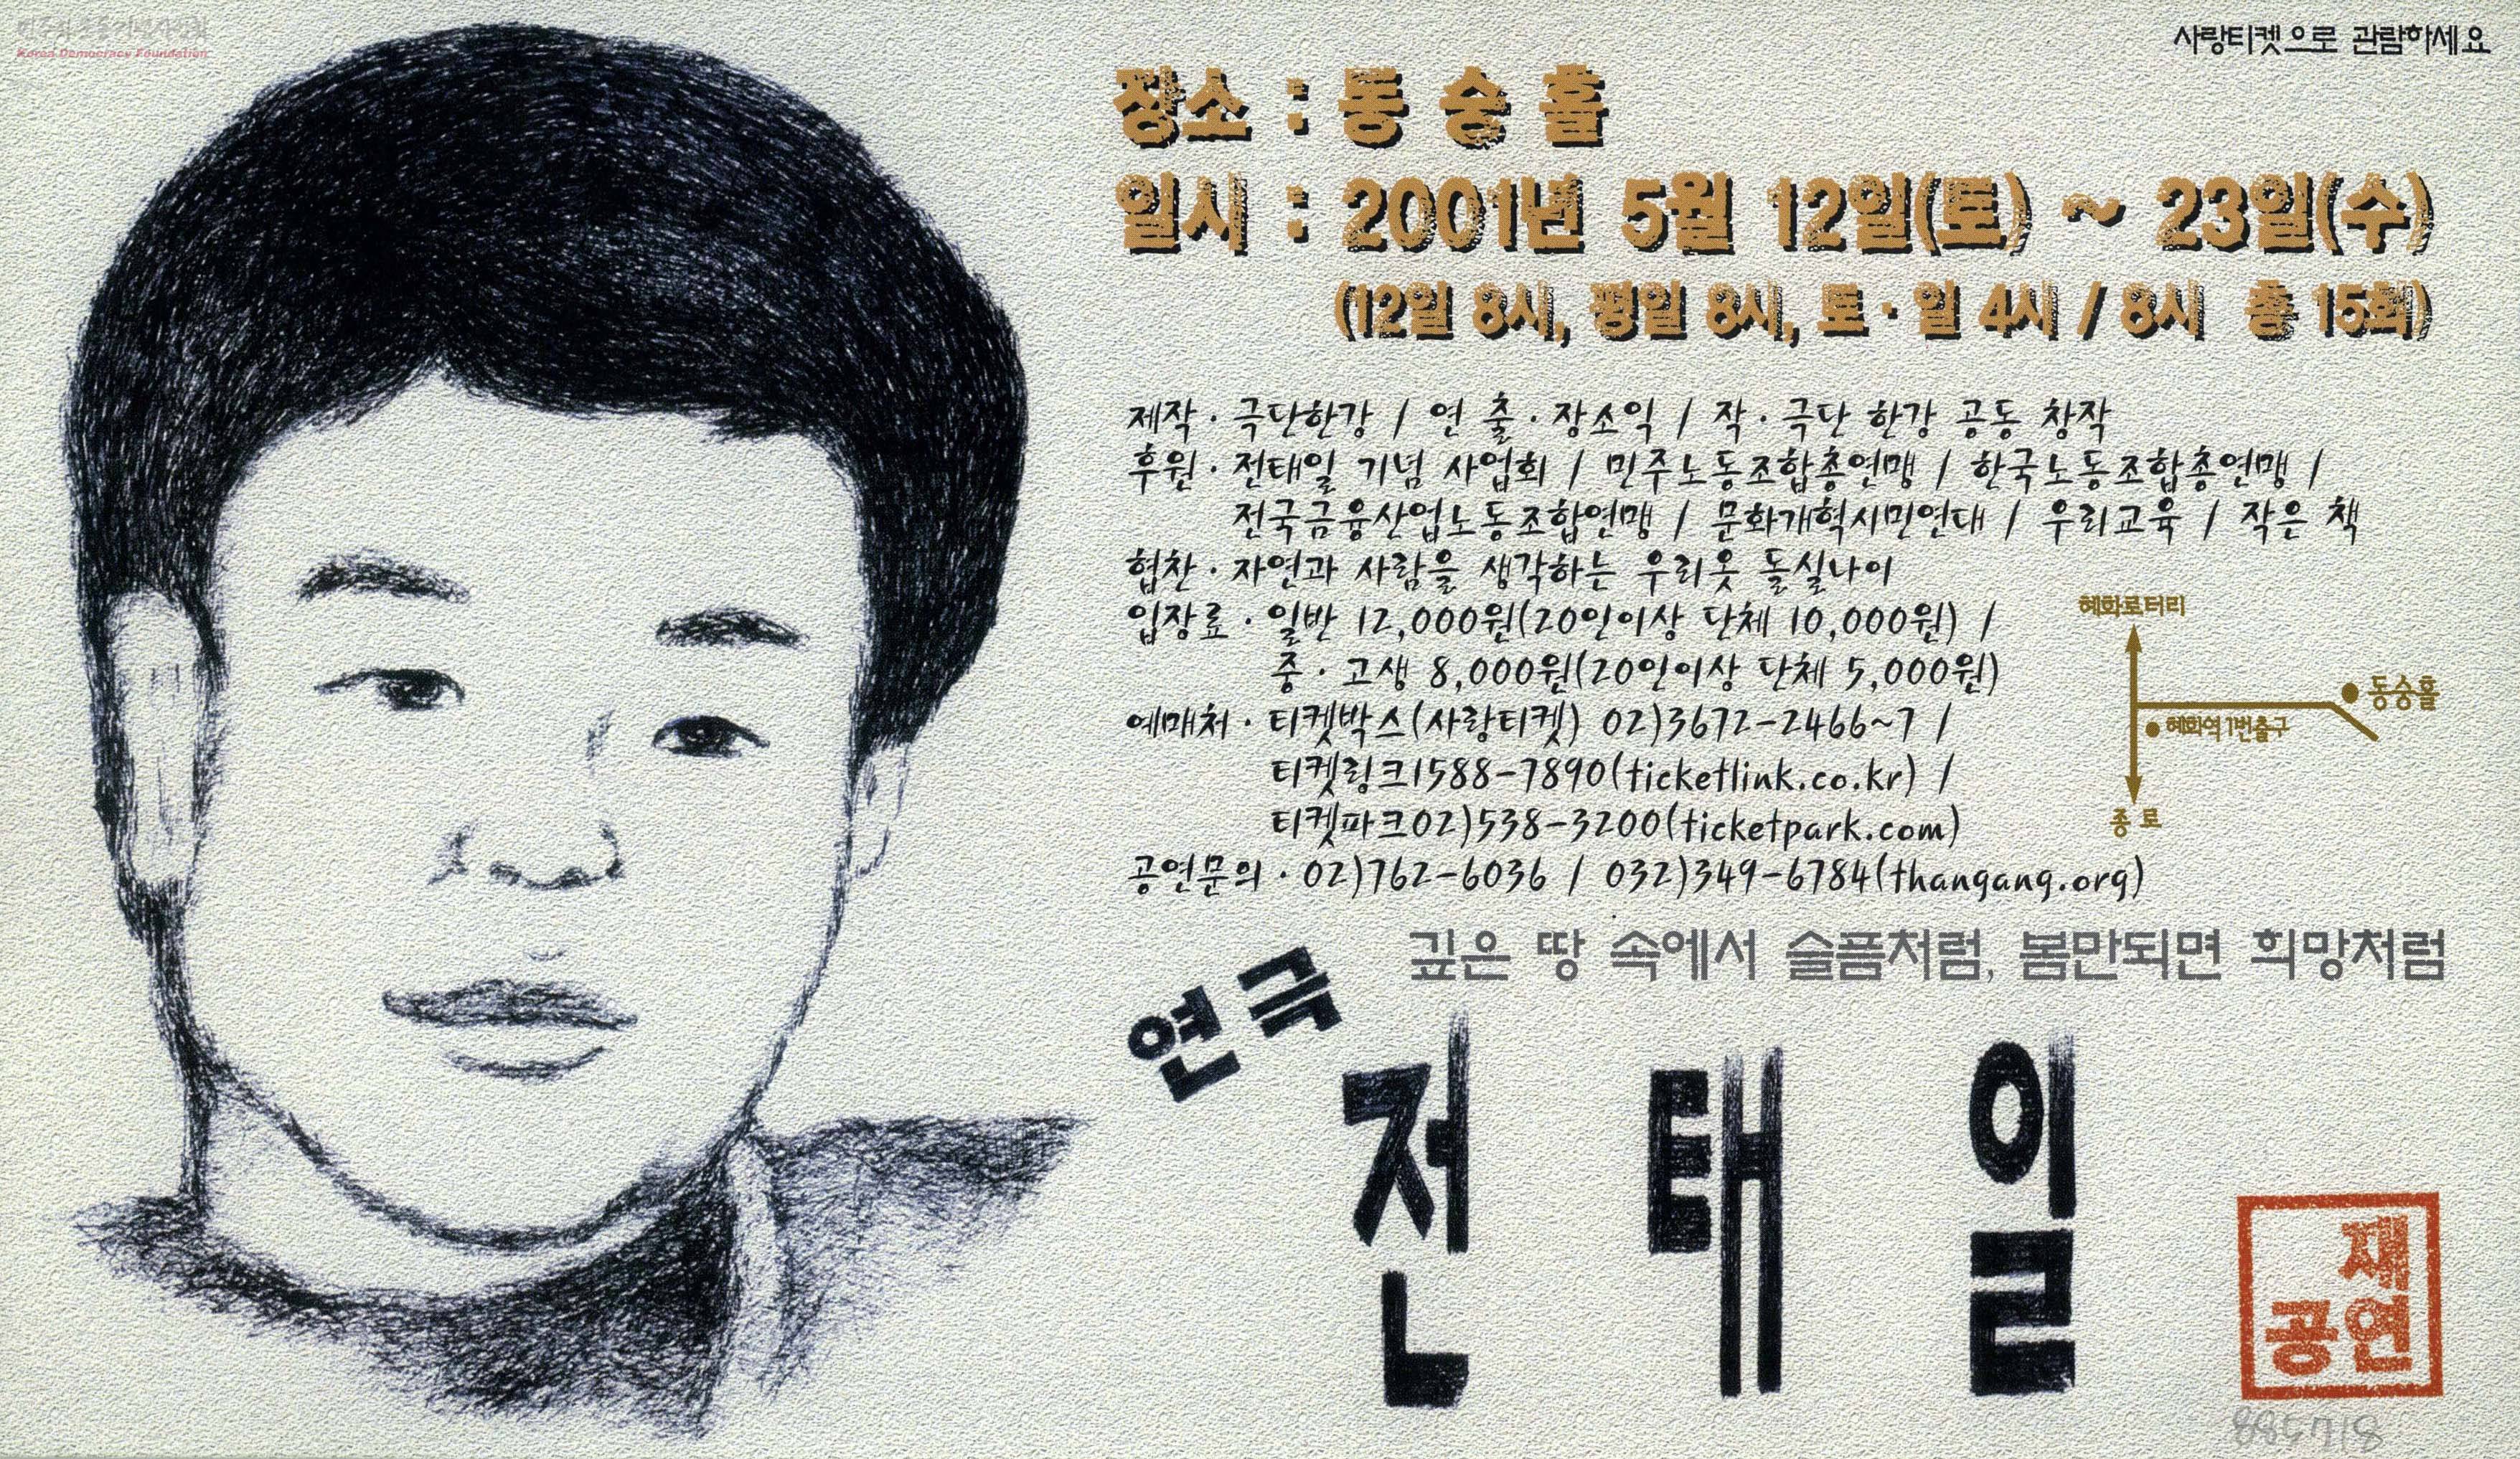 민주화운동기념사업회
Korea Democracy Foundation
사랑티켓으로 관람하세요
장소 : 동 숭 홀
일시 : 2001년 5월 12일(토) ~ 23일(수)
(12일 8시, 평일 8시, 토·일 4시 / 8시 총 15회)
제작 · 극단한강 / 연 출 · 장소익 / 작 · 극단 한강 공동 창작
후원 · 전태일 기념 사업회 / 민주노동조합총연맹 / 한국노동조합총연맹 /
전국금융산업노동조합연맹 / 문화개혁시민연대 / 우리교육 / 작은 책
협찬 · 자연과 사람을 생각하는 우리옷 돌실나이
입장료 · 일반 12,000원(20인이상 단체 10,000원) /
중 · 고생 8,000원(20인이상 단체 5,000원)
예매처 · 티켓박스(사랑티켓) 02)3672-2466~7 /
티켓링크1588-7890(ticketlink.co.kr) /
티켓파크02)538-3200(ticketpark.com)
공연문의 · 02)762-6036 / 032)349-6784(thangang.org)
혜화로터리
동숭홀
혜화역 1번출구
종로
깊은 땅 속에서 슬픔처럼, 봄만되면 희망처럼
연극
전태일
재
공연
885718